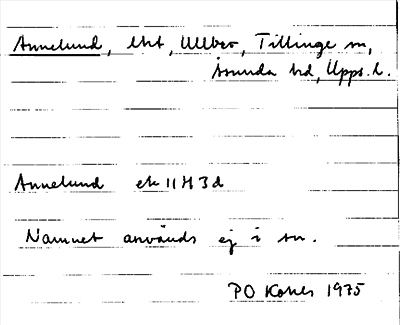 Annelund, lht, Ullbro, Tillinge sn,
Åsunda hd, Upps. l.
Annelund ek 11H3d
Namnet används ej i sn.
PO 1975